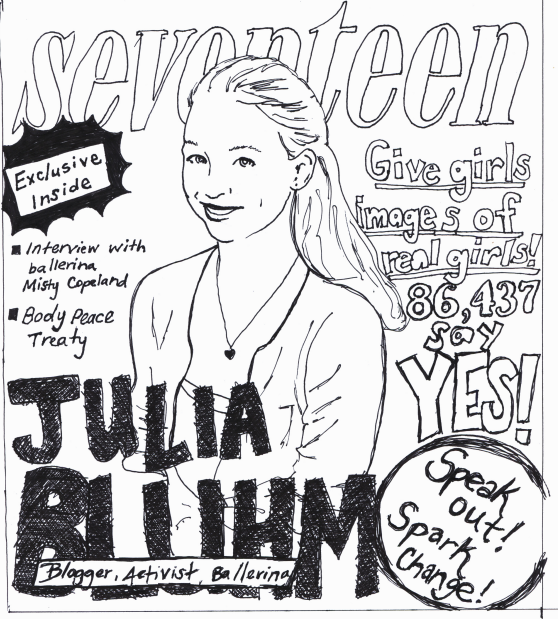 seventeen
Exclusive
Inside
Interview with
ballerina
Misty Copeland
Body Peace
Treaty
Give girls
images of
real girls!
86,437
say
YES!
JULIA
BLUHM
Blogger, Activist, Ballerina
Speak
out!
Spark
Change!